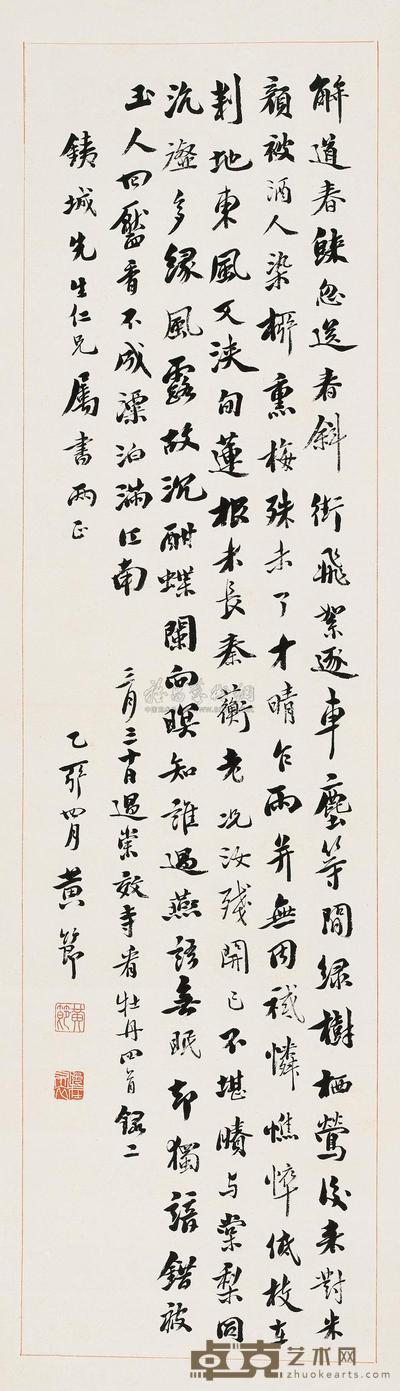 解道春歸忽送春斜街飛絮逐車塵等閒綠樹栖鶯後來對朱
顏被酒人染柳熏梅殊未了才晴乍雨并無因祗憐憔悴低枝在
剗地東風又浹旬蓮根未長秦蘅老況汝殘開已不堪賸與棠梨同
沆瀣多緣風露故沉酣蝶闌向暝知誰過燕語無眠却獨諳錯被
玉人回靨看不成漂泊滿江南 三月三十日過崇效寺看牡丹四首錄二
銕城先生仁兄屬書兩正
乙亥四月 黃節
卓克艺术网
www.zhuokearts.com